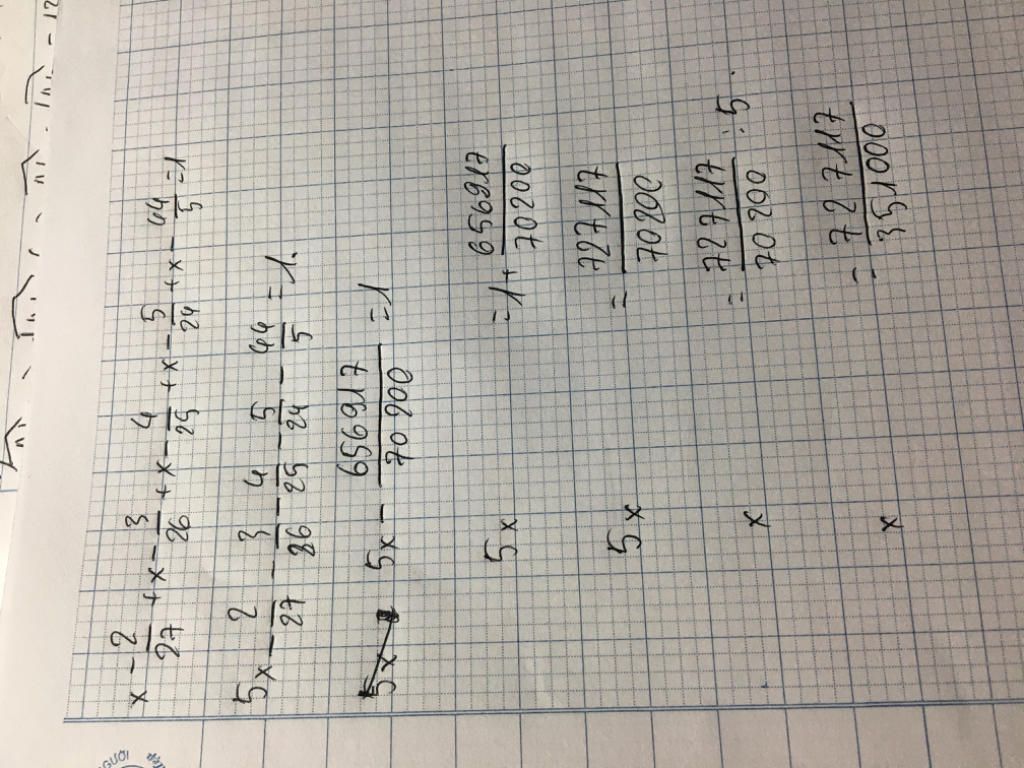 x - 2/27 + x - 3/26 + x - 4/25 + x - 5/24 + x - 44/5 = 1
5x - 2/27 - 3/26 - 4/25 - 5/24 - 44/5 = 1.
5x - 656917/70200 = 1
5x = 1 + 656917/70200
5x = 727117/70200
x = 727117/70200 : 5.
x = 727117/351000